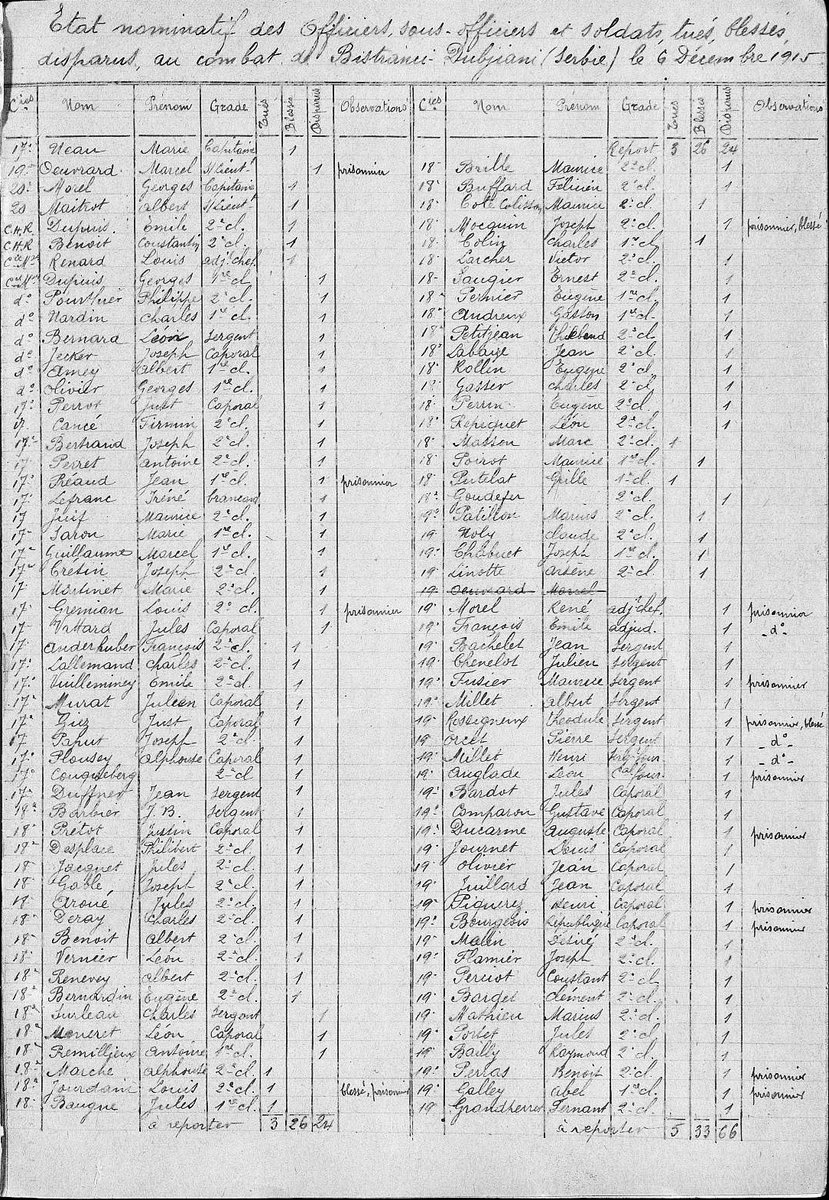 Etat nominatif des Officiers, sous-officiers et soldats, tués, blessés,
disparus, au combat de Bistranci-Dubjiani (Serbie) le 6 Décembre 1915
Cies Nom Prénom Grade Tués Blessés Disparus Observations
17e Neau Marie Capitaine 1
19e Oeuvrard Marcel S/Lieut 1 prisonnier
20e Morel Georges Capitaine 1
20 Maitrot Albert S/Lieut 1
C.H.R Dupuis Emile 2e cl. 1
C.H.R Benoit Constantin 2e cl. 1
Renard Louis adj. chef 1
Dupuis Georges 1re cl. 1
do Pourthier Philippe 2e cl. 1
do Nardin Charles 1re cl. 1
do Bernard Léon Sergent 1
do Jecker Joseph Caporal 1
do Amey Albert 1re cl. 1
do Olivier Georges 1re cl. 1
17e Perrot Just Caporal 1
17 Cancé Firmin 2e cl. 1
17e Bertrand Joseph 2e cl. 1
17e Perret Antoine 2e cl. 1
17e Préaud Jean 1re cl. 1 prisonnier
17e Lefranc Iréné brancard 1
17 Juif Maurice 2e cl. 1
17e Jaron Marie 1re cl. 1
17e Guillaume Marcel 1re cl. 1
17e Cretin Joseph 2e cl. 1
17 Martinet Marie 2e cl. 1
17e Gremian Louis 2e cl. 1 prisonnier
17e Vattard Jules Caporal 1
17e Anderhuber François 2e cl. 1
17e Lallemand Charles 2e cl. 1
17e Vuilleminey Emile 2e cl. 1
17e Murat Julien Caporal 1
17e Guez Just Caporal 1
17 Paput Joseph 2e cl. 1
17e Plousey Alphonse Caporal 1
17e 2e cl. 1
17e Duffner Jean Sergent 1
18e Barbier J.B. Sergent 1
18e Pretot Justin Caporal 1
18e Desplace Philibert 2e cl. 1
18e Jacquet Jules 2e cl. 1
18e Gable Joseph 2e cl. 1
18e Aroué Jules 2e cl. 1
18e Deray Charles 2e cl. 1
18e Benoit Albert 2e cl. 1
18e Vernier Léon 2e cl. 1
18e Renevey Albert 2e cl. 1
18e Bernardin Eugène 2e cl. 1
18e Surleau Charles Sergent 1
18e Moneret Léon Caporal 1
18e Remillieux Antoine 1re cl. 1
18e Marche Alphonse 2e cl. 1
18e Jourdain Louis 2e cl. 1 blessé, prisonnier
18e Baugne Jules 1re cl. 1
à reporter 3 26 24
Cies Nom Prénom Grade Tués Blessés Disparus Observations
Report 3 26 24
18e Brille Maurice 2e cl. 1
18e Buffard Félicien 2e cl. 1
18e Cott Colisson Maurice 2e cl. 1
18e Mocquin Joseph 2e cl. 1 prisonnier, blessé
18e Colin Charles 1re cl. 1
18e Larcher Victor 2e cl. 1
18e Saugier Ernest 2e cl. 1
18e Pernier Eugène 1re cl. 1
18e Andreux Gaston 1re cl. 1
18e Petitjean Thiebaud 2e cl. 1
18e Labaye Jean 2e cl. 1
18e Rollin Eugène 2e cl. 1
18e Gasser Charles 2e cl. 1
18e Perrin Eugène 2e cl. 1
18e Repiquet Léon 2e cl. 1
18e Massieu Marc 2e cl. 1
18e Poirot Maurice 1re cl. 1
18e Putelat 1re cl. 1
18e Goudefer 2e cl. 1
19e Patillon Marius 2e cl. 1
19 Noly Claude 2e cl. 1
19e Chabret Joseph 1re cl. 1
19e Linotte Arsène 2e cl. 1
19 Oeuvrard Marcel
19e Morel René adj. chef. 1 prisonnier
19e François Emile adjud. 1 -do-
19e Bachelet Jean Sergent 1
19e Chenelot Julien Sergent 1
19e Fusier Maurice Sergent 1 prisonnier
19e Millet Albert Sergent 1
19e Rossigneux Théodule Sergent 1 prisonnier, blessé
19e Orcet Pierre Sergent 1 -do-
19e Millet Henri Serg. four 1 -do-
19e Anglade Léon Cal four. 1 prisonnier
19e Bardot Jules Caporal 1
19e Comparon Gustave Caporal 1
19e Ducarme Auguste Caporal 1 prisonnier
19e Journet Denis Caporal 1
19e Olivier Jean Caporal 1
19e Juillard Jean Caporal 1
19e Piquerez Henri Caporal 1 prisonnier
19e Bourgeois République Caporal 1 prisonnier
19e Malin Désiré 2e cl. 1
19e Flamier Joseph 2e cl. 1
19e Perriot Constant 2e cl. 1
19e Bardet Clément 2e cl. 1
19e Mathieu Marius 2e cl. 1
19e Portet Jules 2e cl. 1
19e Bailly Raymond 2e cl. 1
19e Perras Benoit 2e cl. 1 prisonnier
19e Galley Abel 1re cl. 1 prisonnier
19e Grandperret Fernant 2e cl. 1
à reporter 5 33 66